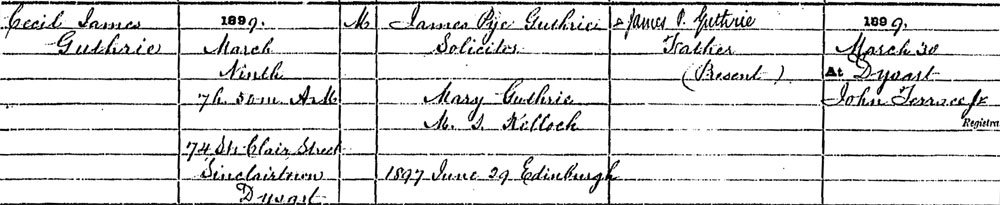 Cecil James
Guthrie
1899.
March
Ninth
7h. 50m. A.M
74 St. Clair Street
Sinclairtown
Dysart
M
James Pye Guthrie
Solicitor
Mary Guthrie
M. S. Killoch
1897 June 29 Edinburgh
James P. Guthrie
Father
(Present)
1899.
March 30
At Dysart
John Terrace Jr
Registra